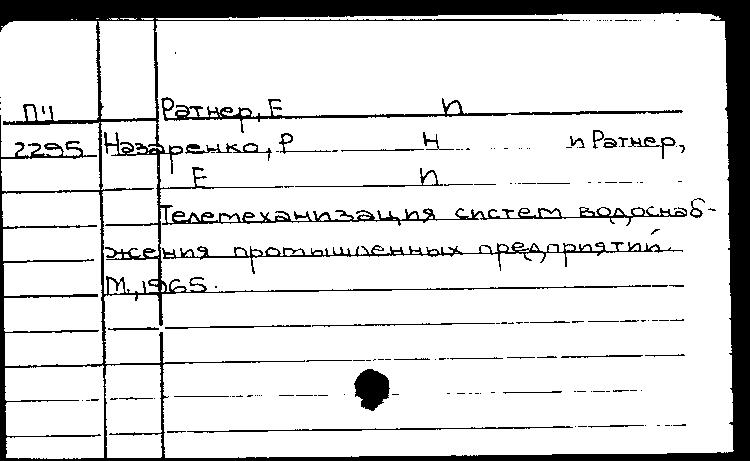 ПЧ Ратнер, Е П
2295 Назаренко, Р Н и Ратнер,
Е П
Телемеханизация систем водоснаб-
жения промышленных предприятий.
М., 1965.